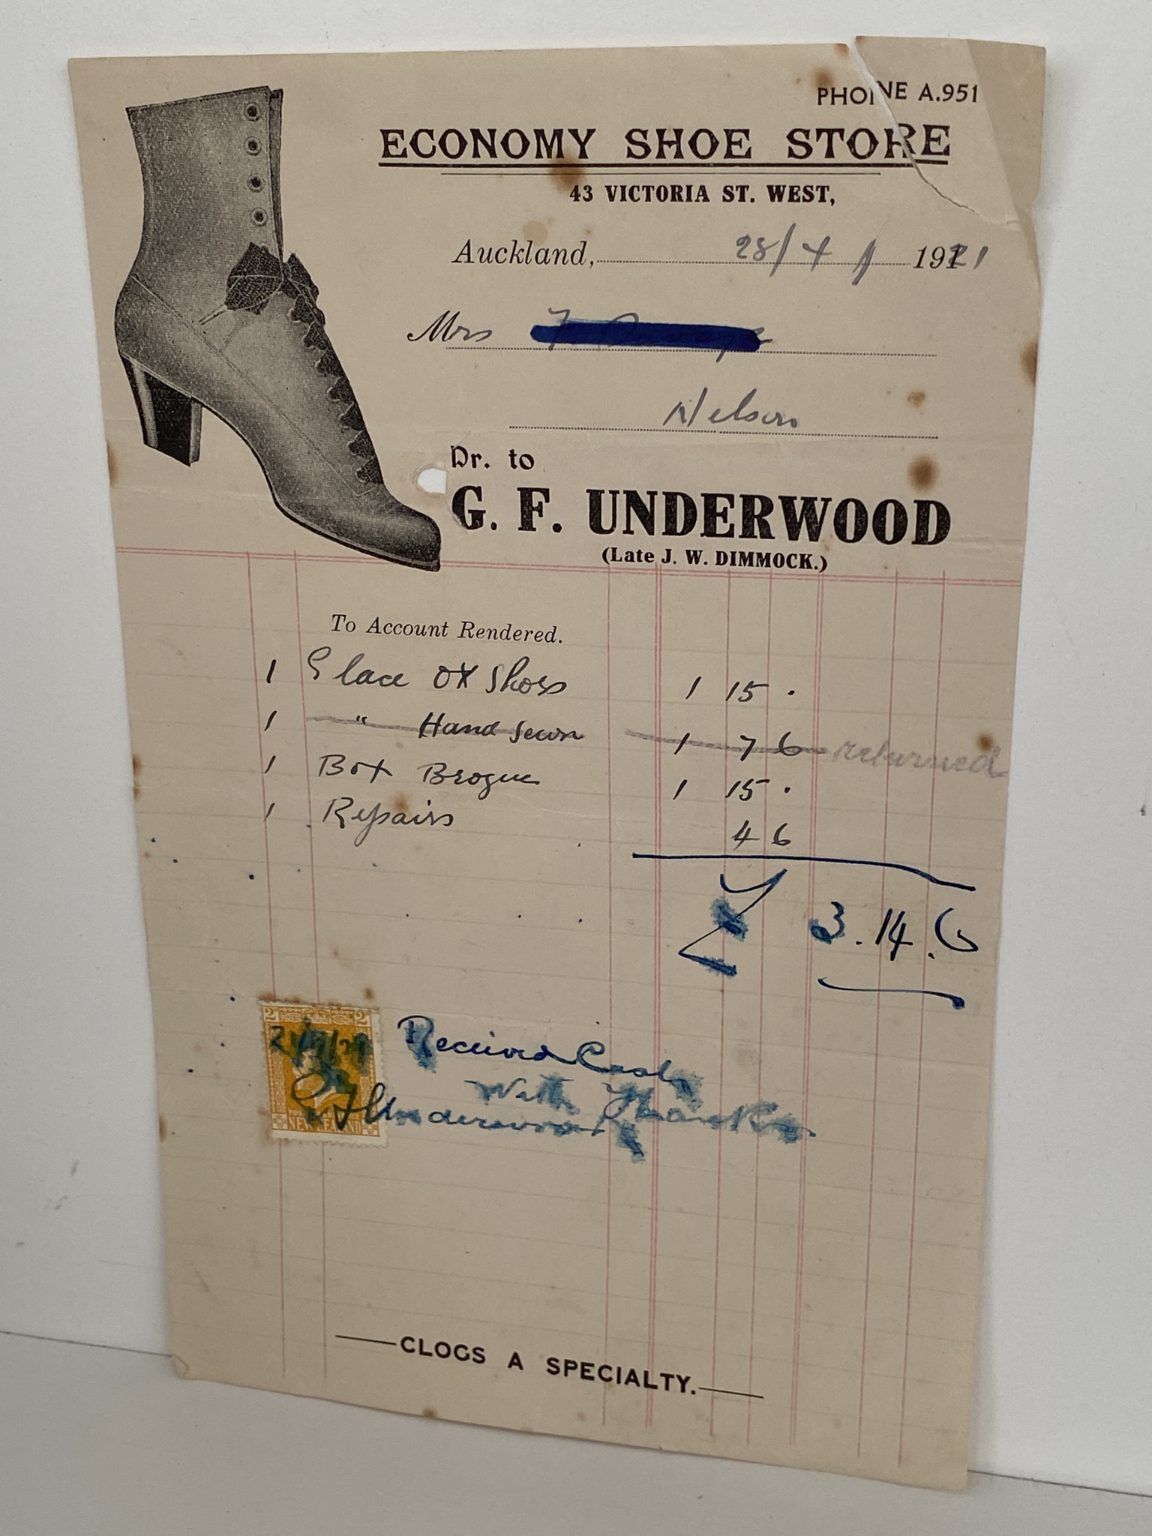 PHONE A.951
ECONOMY SHOE STORE
43 VICTORIA ST. WEST,
Auckland, 28/4/ 1921
Mrs
Nelson
Dr. to
G. F. UNDERWOOD
(Late J. W. DIMMOCK.)
To Account Rendered.
1 Glace OX Shoes 1 15 .
1 " Hand Sewn 1 7 6 returned
1 Box Brogue 1 15 .
1 Repairs 4 6
£ 3.14.6
2 2
Received Cash
With Thanks
G F Underwood
NEW ZEALAND
CLOGS A SPECIALTY.